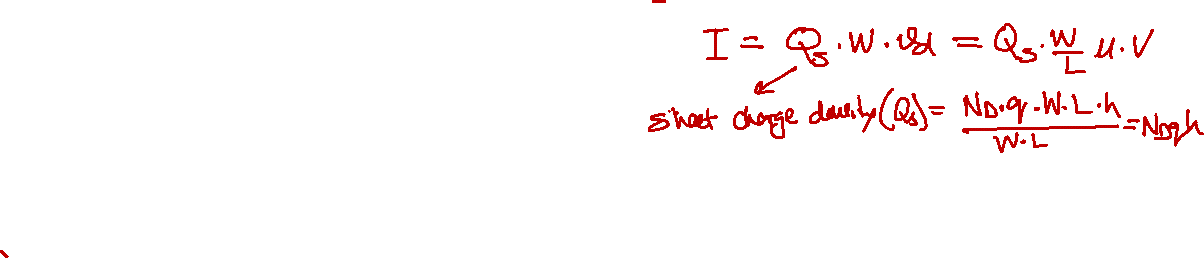 I = Qs · W · vd = Qs · W/L μ · V
sheet charge density (Qs) = ND·q·W·L·h / W·L = NDqh